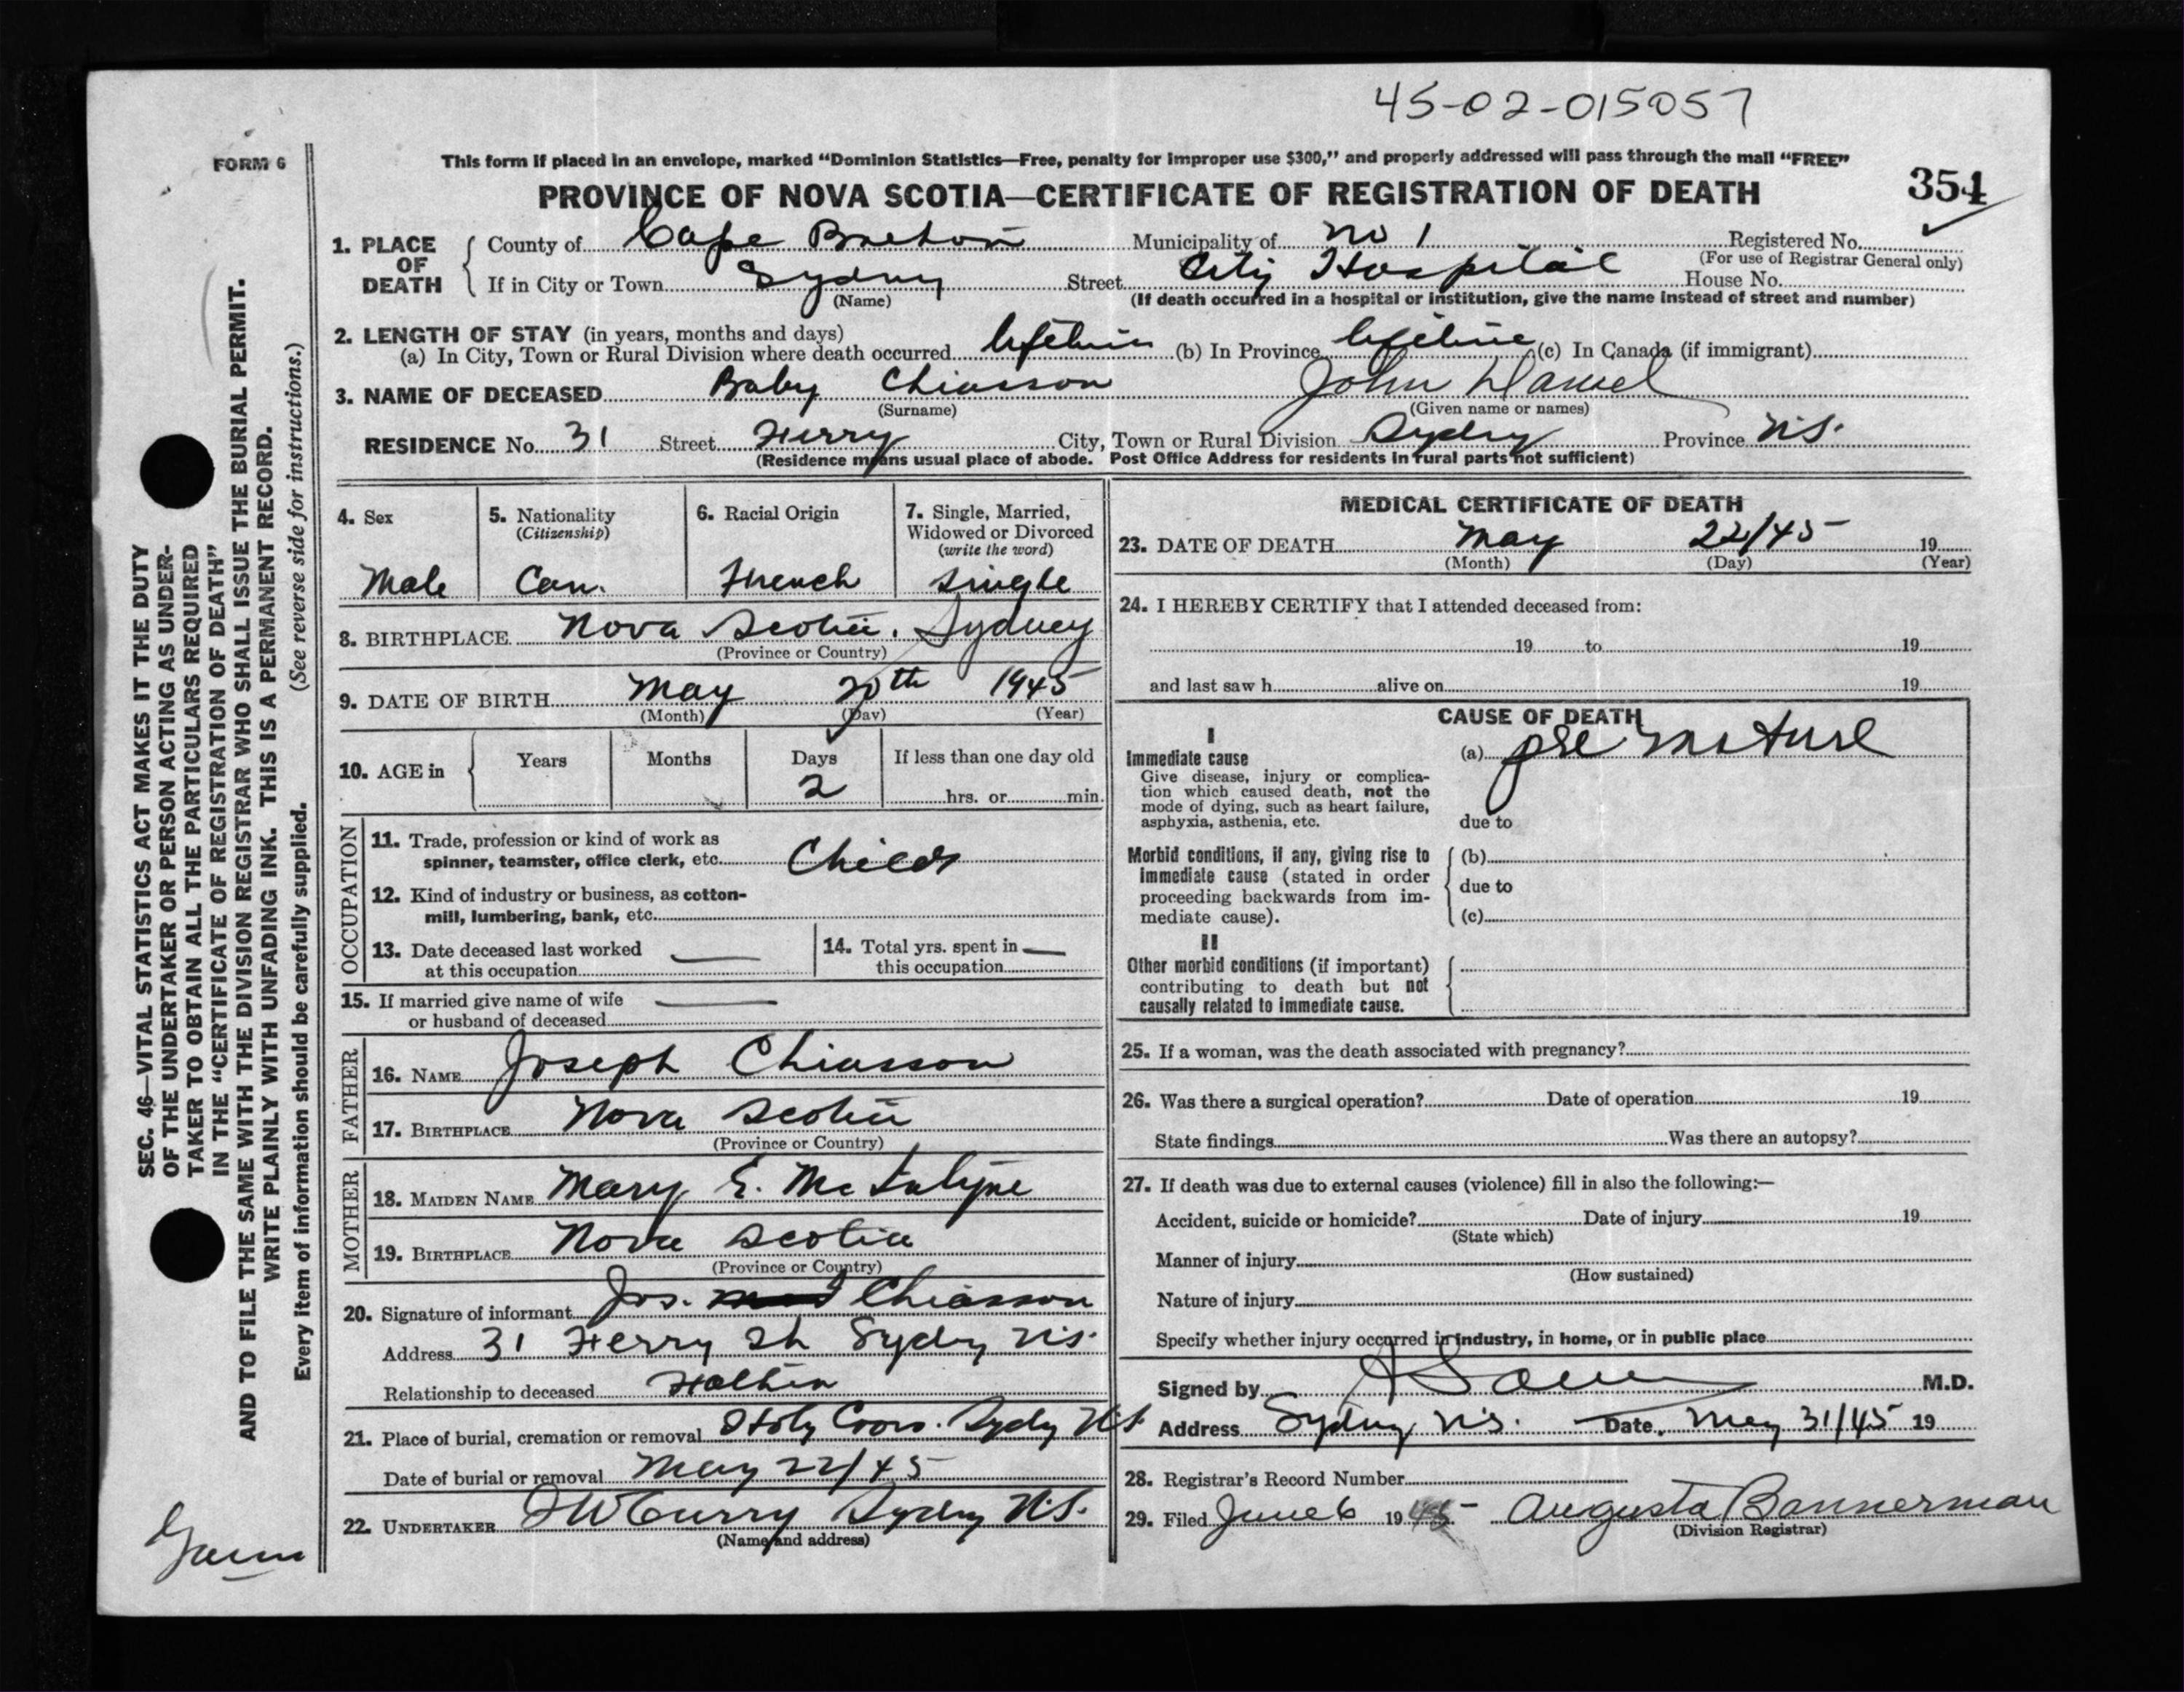 45-02-015057
FORM 6
This form if placed in an envelope, marked “Dominion Statistics—Free, penalty for improper use $300,” and properly addressed will pass through the mail “FREE”
PROVINCE OF NOVA SCOTIA—CERTIFICATE OF REGISTRATION OF DEATH
354
1. PLACE OF DEATH
County of Cape Breton Municipality of No 1 Registered No.
(For use of Registrar General only)
If in City or Town Sydney Street City Hospital House No.
(Name) (If death occurred in a hospital or institution, give the name instead of street and number)
2. LENGTH OF STAY (in years, months and days)
(a) In City, Town or Rural Division where death occurred lifetime (b) In Province lifetime (c) In Canada (if immigrant)
3. NAME OF DECEASED Baby Chiasson John Daniel
(Surname) (Given name or names)
RESIDENCE No. 31 Street Ferry City, Town or Rural Division Sydney Province N.S.
(Residence means usual place of abode. Post Office Address for residents in rural parts not sufficient)
4. Sex
Male
5. Nationality
(Citizenship)
Can.
6. Racial Origin
French
7. Single, Married,
Widowed or Divorced
(write the word)
single
8. BIRTHPLACE Nova Scotia. Sydney
(Province or Country)
9. DATE OF BIRTH May 20th 1945
(Month) (Day) (Year)
10. AGE in Years Months Days If less than one day old
2 hrs. or min.
OCCUPATION
11. Trade, profession or kind of work as
spinner, teamster, office clerk, etc. Child
12. Kind of industry or business, as cotton-
mill, lumbering, bank, etc.
13. Date deceased last worked
at this occupation —
14. Total yrs. spent in —
this occupation
15. If married give name of wife —
or husband of deceased
FATHER
16. NAME Joseph Chiasson
17. BIRTHPLACE Nova Scotia
(Province or Country)
MOTHER
18. MAIDEN NAME Mary E. McIntyre
19. BIRTHPLACE Nova Scotia
(Province or Country)
20. Signature of informant Jos. Chiasson
Address 31 Ferry St Sydney N.S.
Relationship to deceased Father
21. Place of burial, cremation or removal Holy Cross. Sydney N.S.
Date of burial or removal May 22/45
22. UNDERTAKER Curry Sydney N.S.
(Name and address)
MEDICAL CERTIFICATE OF DEATH
23. DATE OF DEATH May 22/45 19
(Month) (Day) (Year)
24. I HEREBY CERTIFY that I attended deceased from:
19 to 19
and last saw h alive on 19
CAUSE OF DEATH
I
Immediate cause
Give disease, injury or complica-
tion which caused death, not the
mode of dying, such as heart failure,
asphyxia, asthenia, etc.
(a) pre mature
due to
Morbid conditions, if any, giving rise to
immediate cause (stated in order
proceeding backwards from im-
mediate cause).
(b)
due to
(c)
II
Other morbid conditions (if important)
contributing to death but not
causally related to immediate cause.
25. If a woman, was the death associated with pregnancy?
26. Was there a surgical operation? Date of operation 19
State findings Was there an autopsy?
27. If death was due to external causes (violence) fill in also the following:—
Accident, suicide or homicide? Date of injury 19
(State which)
Manner of injury
(How sustained)
Nature of injury
Specify whether injury occurred in industry, in home, or in public place
Signed by M.D.
Address Sydney N.S. Date May 31/45 19
28. Registrar's Record Number
29. Filed June 6 1945 Augusta Bannerman
(Division Registrar)
SEC. 46—VITAL STATISTICS ACT MAKES IT THE DUTY
OF THE UNDERTAKER OR PERSON ACTING AS UNDER-
TAKER TO OBTAIN ALL THE PARTICULARS REQUIRED
IN THE “CERTIFICATE OF REGISTRATION OF DEATH”
AND TO FILE THE SAME WITH THE DIVISION REGISTRAR WHO SHALL ISSUE THE BURIAL PERMIT.
WRITE PLAINLY WITH UNFADING INK. THIS IS A PERMANENT RECORD.
Every item of information should be carefully supplied. (See reverse side for instructions.)